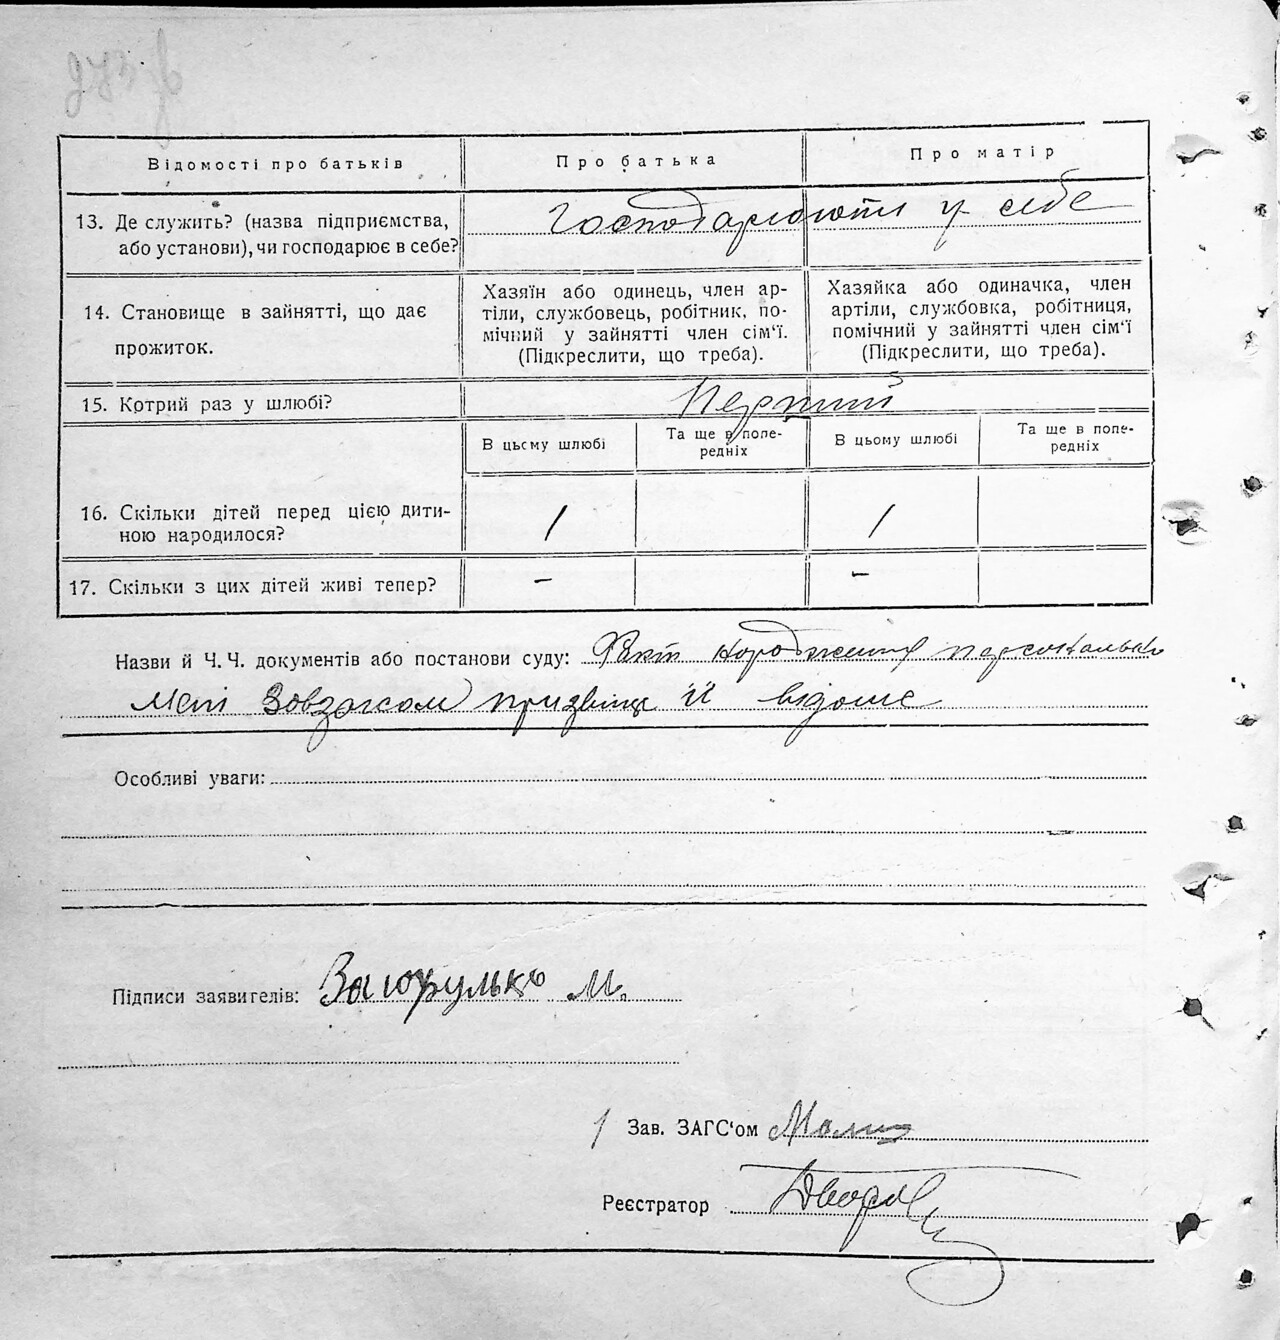 Відомості про батьків
Про батька
Про матір
13. Де служить? (назва підприємства,
або установи), чи господарює в себе?
Господарюють у себе
14. Становище в зайнятті, що дає
прожиток.
Хазяїн або одинець, член ар-
тіли, службовець, робітник, по-
мічний у зайнятті член сім'ї.
(Підкреслити, що треба).
Хазяйка або одиначка, член
артіли, службовка, робітниця,
помічний у зайнятті член сім'ї
(Підкреслити, що треба).
15. Котрий раз у шлюбі?
Перший
В цьому шлюбі
Та ще в попе-
редніх
В цьому шлюбі
Та ще в попе-
редніх
16. Скільки дітей перед цією дити-
ною народилося?
1
1
17. Скільки з цих дітей живі тепер?
–
–
Назви й Ч. Ч. документів або постанови суду: Факт народження персонально
мені Завзагсом прізвище й відоме
Особливі уваги:
Підписи заявителів: М.
Зав. ЗАГС'ом
Реєстратор